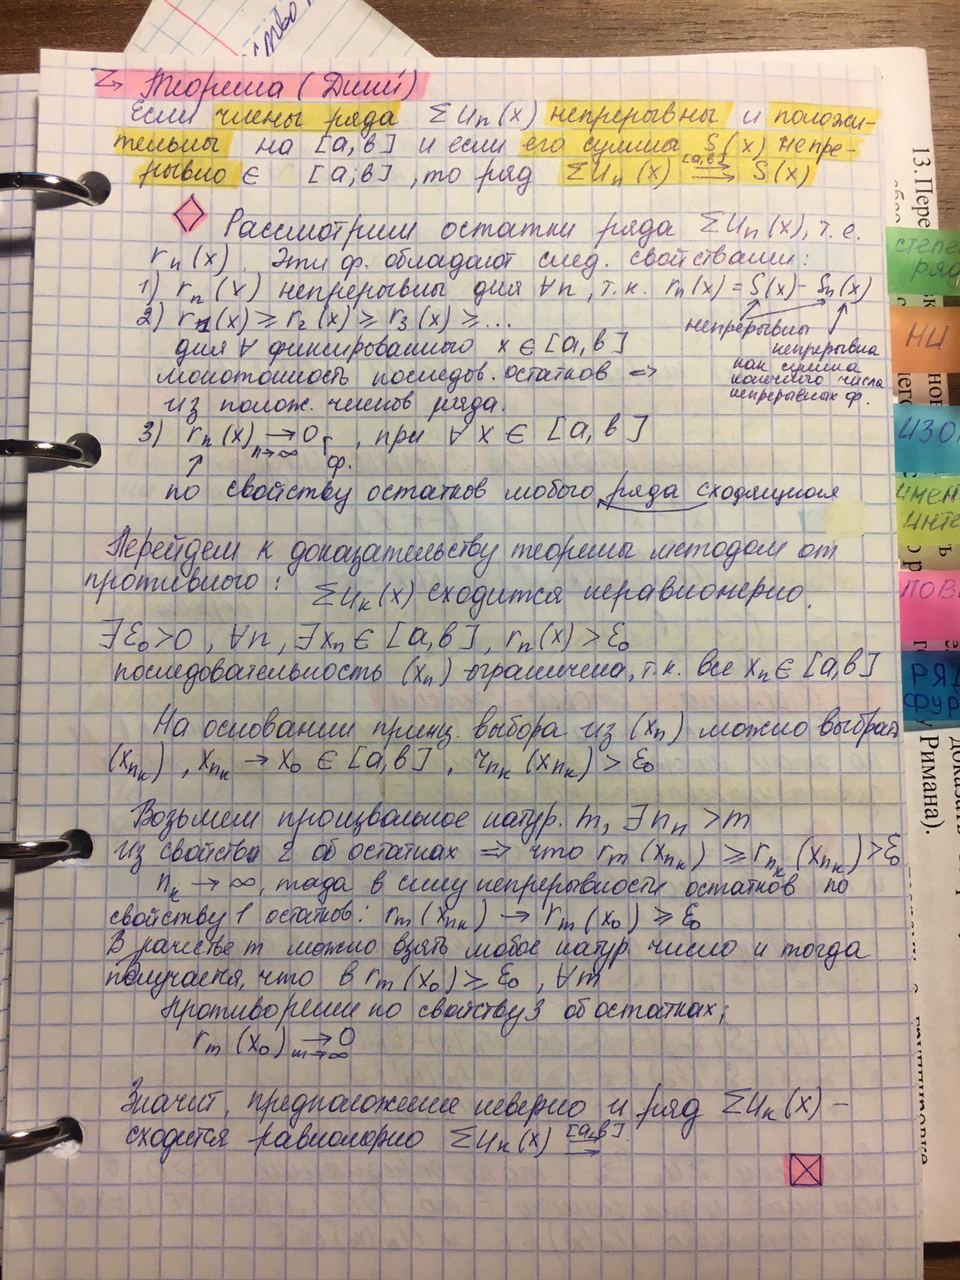 ство
Теорема (Дини)
Если члены ряда Σ Un(x) непрерывны и положи-
тельны на [a,b] и если его сумма S(x) непре-
рывно ∈ [a;b], то ряд ΣUn(x) [a,b]⇉ S(x)
Рассмотрим остатки ряда ΣUn(x), т.е.
rn(x). Эти ф. обладают след. свойствами:
1) rn(x) непрерывны для ∀n, т.к. rn(x) = S(x) - Sn(x)
непрерывны
2) r1(x) ≥ r2(x) ≥ r3(x) ≥ ...
непрерывна
как сумма
конечного числа
непрерывных ф.
для ∀ фиксированного x ∈ [a,b]
монотонность последов. остатков =>
из полож. членов ряда.
3) rn(x) → 0, при ∀ x ∈ [a,b]
n→∞
ф.
по свойству остатков любого ряда сходящегося
Перейдем к доказательству теоремы методом от
противного: ΣUk(x) сходится неравномерно.
∃ε0>0, ∀n, ∃xn ∈ [a,b], rn(x) > ε0
последовательность (xn) ограничена, т.к. все xn ∈ [a,b]
На основании принц. выбора из (xn) можно выбрать
(xnk), xnk → x0 ∈ [a,b], rnk(xnk) > ε0
Возьмем произвольное натур. m, ∃ nn > m
Из свойства 2 об остатках => что rm(xnk) ≥ rnk(xnk) > ε0
nk → ∞, тада в силу непрерывности остатков по
свойству 1 остатков: rm(xnk) → rm(x0) ≥ ε0
В качестве m можно взять любое натур. число и тогда
получается, что в rm(x0) ≥ ε0, ∀m
Противоречие по свойству 3 об остатках;
rm(x0) → 0
m→∞
Значит, предположение неверно и ряд ΣUk(x) -
сходится равномерно ΣUk(x) [a,b]⇉
13. Пере
степе
ряд
НИ
ИЗО
имен
инте
ПОВ
РЯД
ФУР
Римана).
доказать